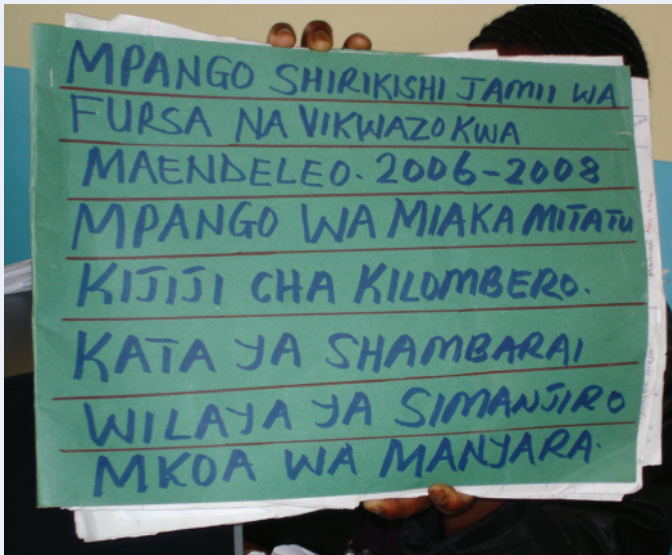 MPANGO SHIRIKISHI JAMII WA
FURSA NA VIKWAZO KWA
MAENDELEO. 2006-2008
MPANGO WA MIAKA MITATU
KIJIJI CHA KILOMBERO.
KATA YA SHAMBARAI
WILAYA YA SIMANJIRO
MKOA WA MANYARA.